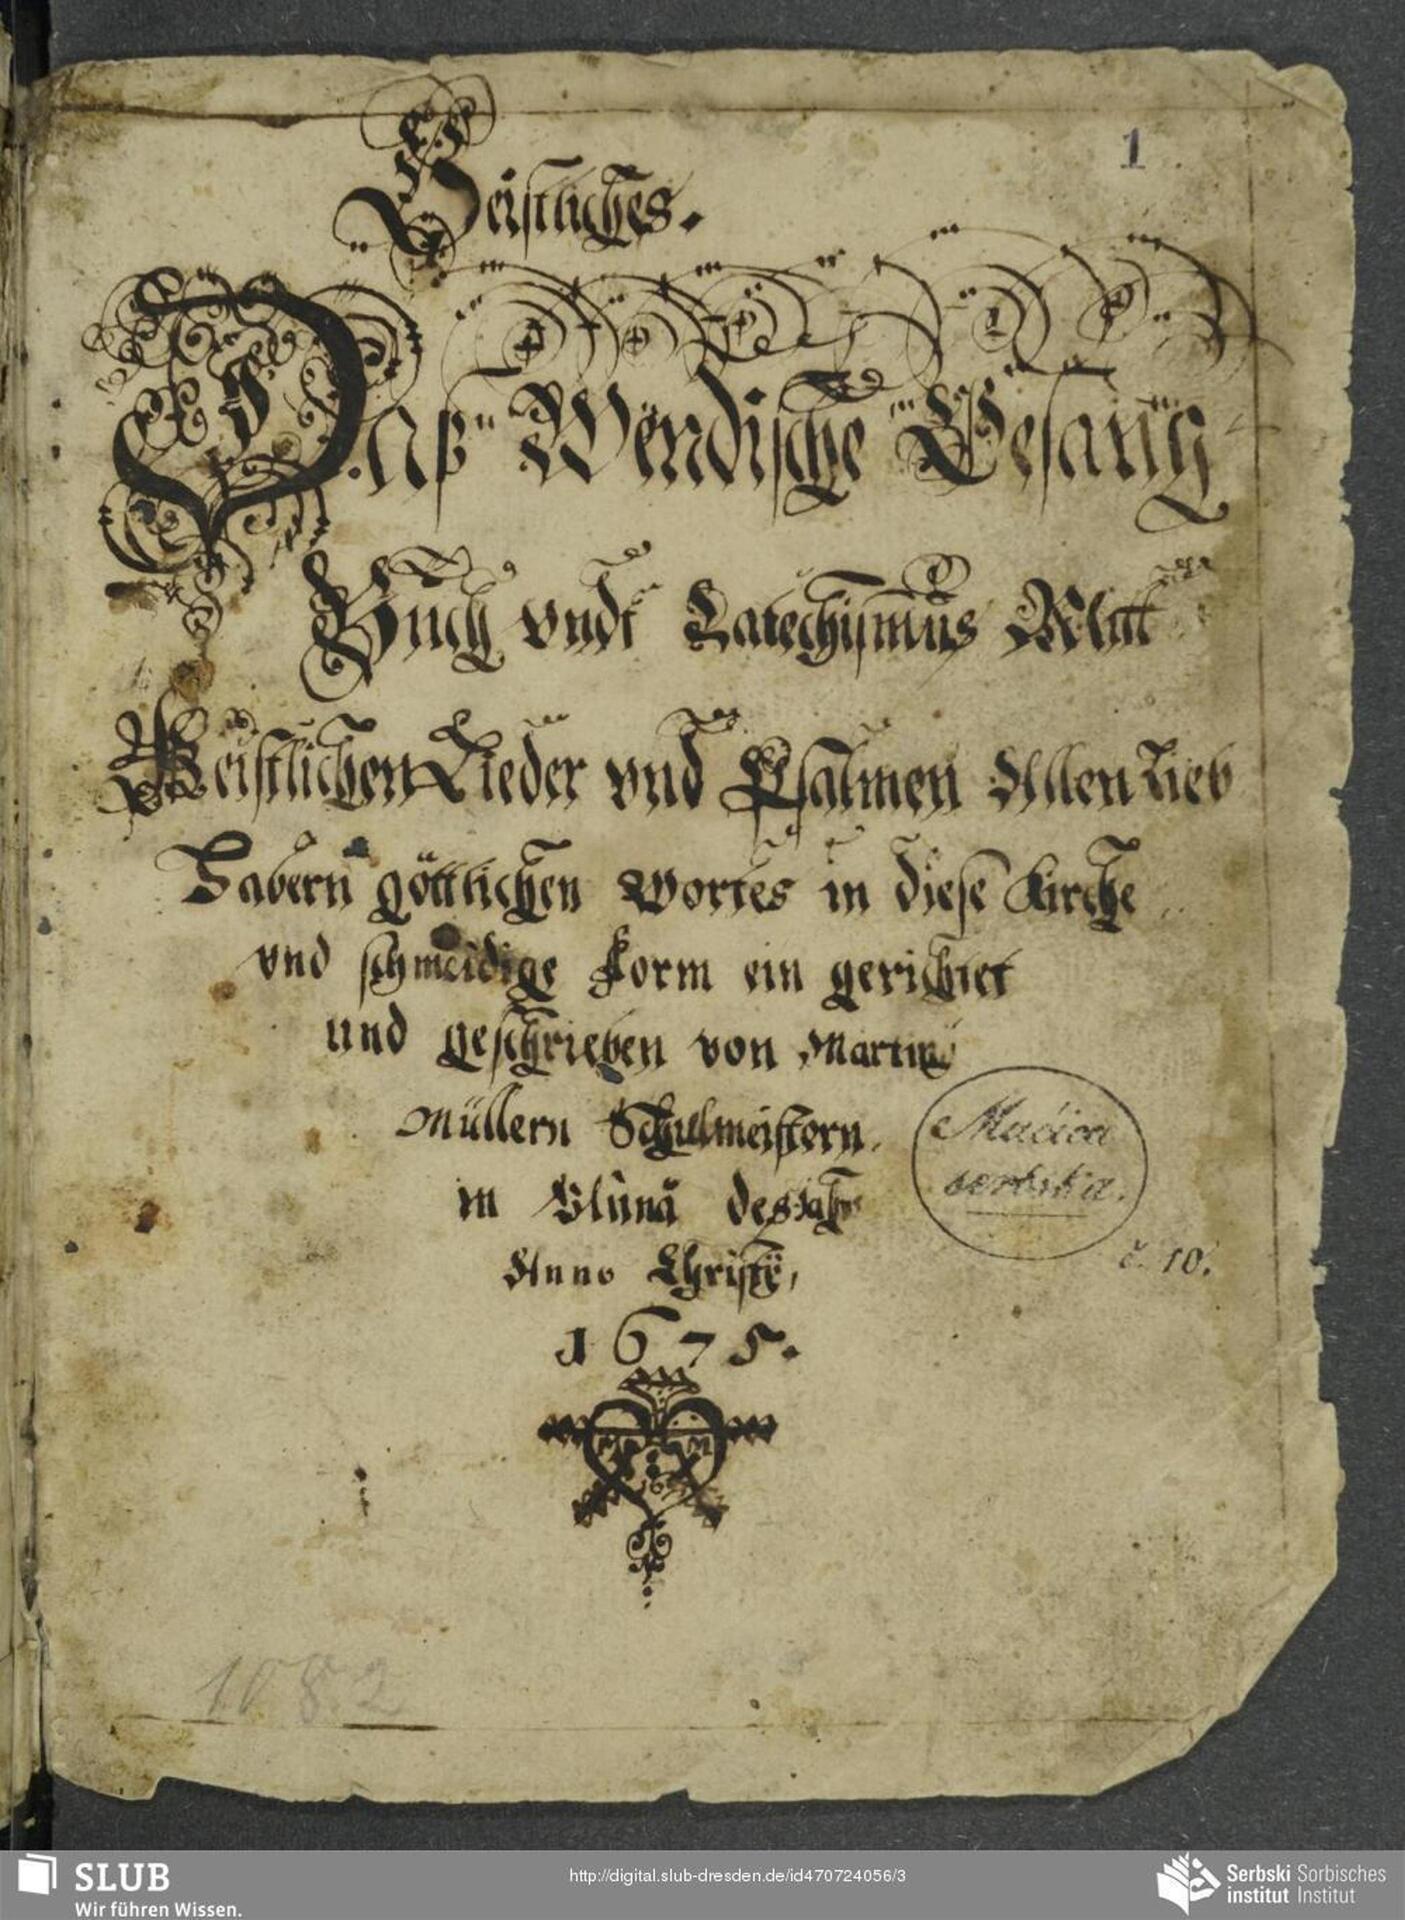 1
Geistliches.
Daß Wendische Gesang
Buch vndt Catechismus Mitt
Geistlichen Lieder vnd Psalmen Allen lieb
Habern göttlichen wortes in diese Kirche
vnd schmeidige form ein gerichtet
und geschrieben von Martin
Müllern Schulmeistern.
in
Anno Christy,
1675.
Maćica
serbska.
č. 10.
1082
SLUB
Wir führen Wissen.
http://digital.slub-dresden.de/id470724056/3
Serbski Sorbisches
institut Institut